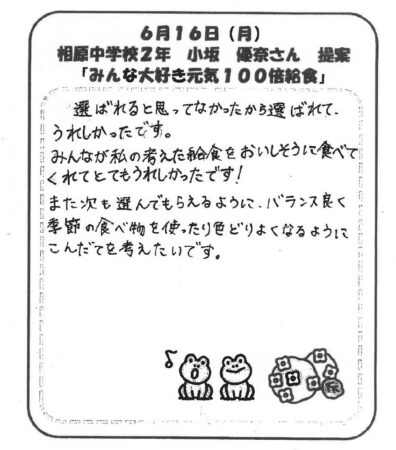 6月16日（月）
相原中学校2年　小坂　優奈さん　提案
「みんな大好き元気100倍給食」
選ばれると思ってなかったから選ばれて、
うれしかったです。
みんなが私の考えた給食をおいしそうに食べて
くれてとてもうれしかったです!
また次も選んでもらえるように、バランス良く
季節の食べ物を使ったり色どりよくなるように
こんだてを考えたいです。